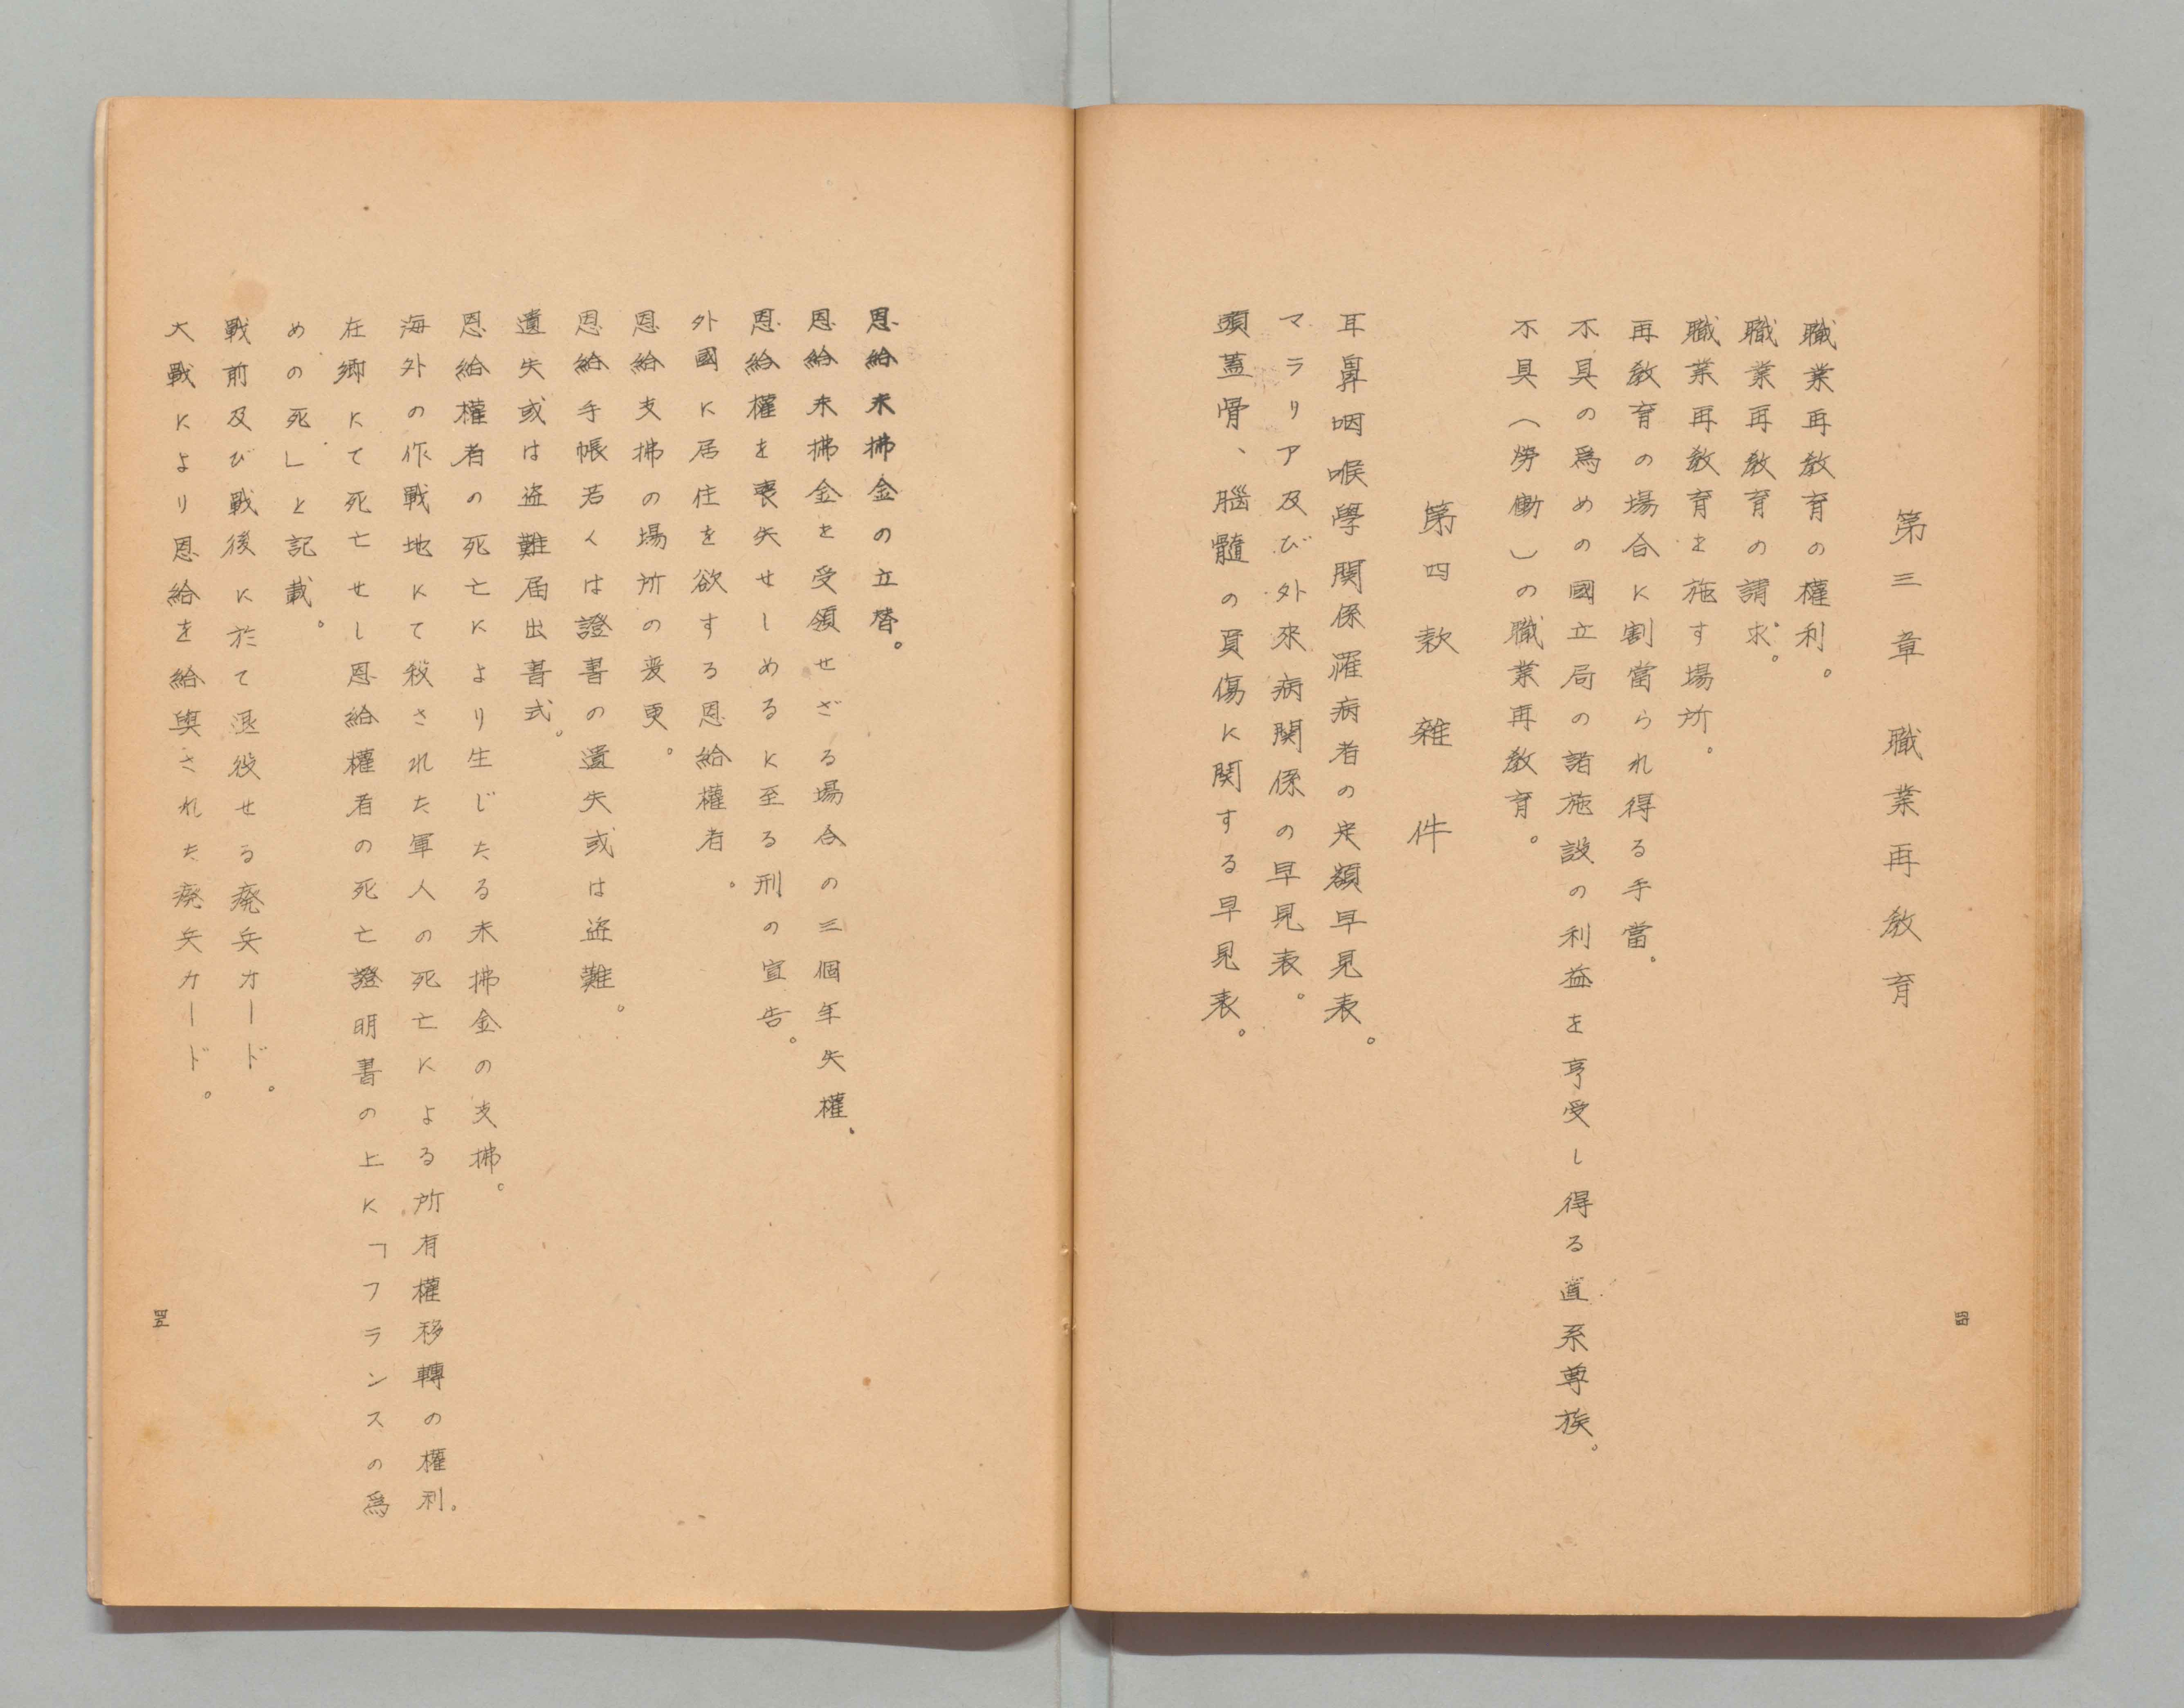 第三章　職業再教育
職業再教育の權利。
職業再教育の請求。
職業再教育を施す場所。
再教育の場合に割當られ得る手當。
不具の爲めの國立局の諸施設の利益を享受し得る直系尊族。
不具（勞働）の職業再教育。
第四款　雜件
耳鼻咽喉學関係罹病者の定額早見表。
マラリア及び外來病関係の早見表。
頭蓋骨、腦髓の負傷に関する早見表。
四四
恩給未拂金の立替。
恩給未拂金を受領せざる場合の三個年失權、
恩給權を喪失せしめるに至る刑の宣告。
外國に居住を欲する恩給權者。
恩給支拂の場所の変更。
恩給手帳若くは證書の遺失或は盗難。
遺失或は盗難届出書式。
恩給權者の死亡により生じたる未拂金の支拂。
海外の作戰地にて殺された軍人の死亡による所有權移轉の權利。
在郷にて死亡せし恩給權者の死亡證明書の上に「フランスの爲
めの死」と記載。
戰前及び戰後に於て退役せる癈兵カード。
大戰により恩給を給與された癈兵カード。
四五